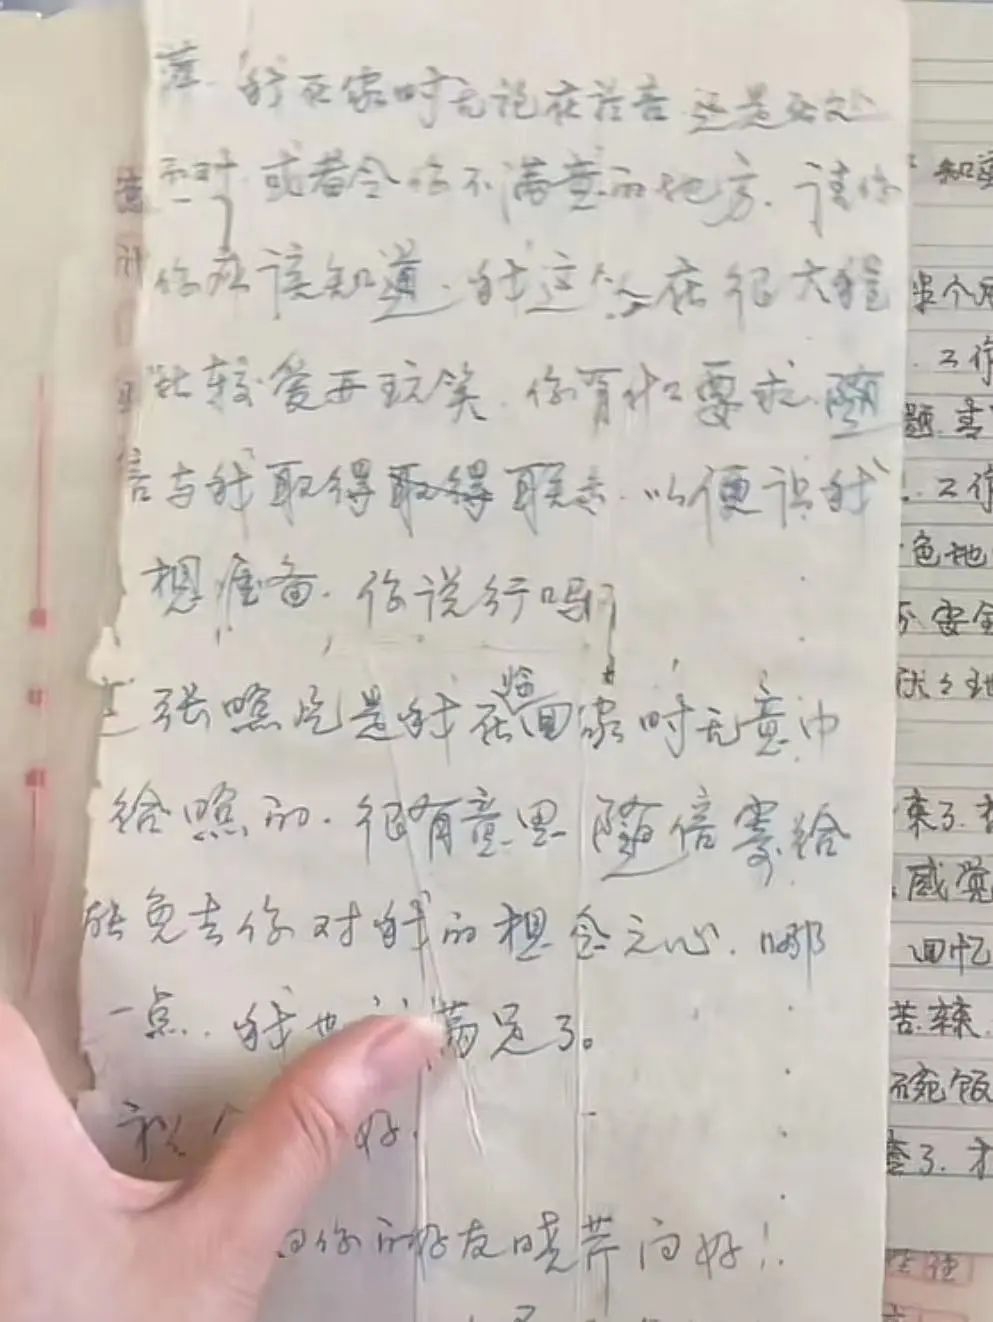 萍.我在家时无论在语言还是在处
和时.或者令你不满意的地方.请你
你应该知道.我这个人在很大程
比较爱开玩笑.你有什么要求.随
信与我取得取得联系.以便让我
想准备.你说行吗
张照片是我在临回家时无意中
给照的.很有意思随信寄给
能免去你对我的想念之心.哪
一点.我也 满足了。
好.
向你的好友晓芹问好!
半个月
.工作
题.
.工作
色地
不安全
来了.
感觉
回忆
苦.辣.
碗饭
了.